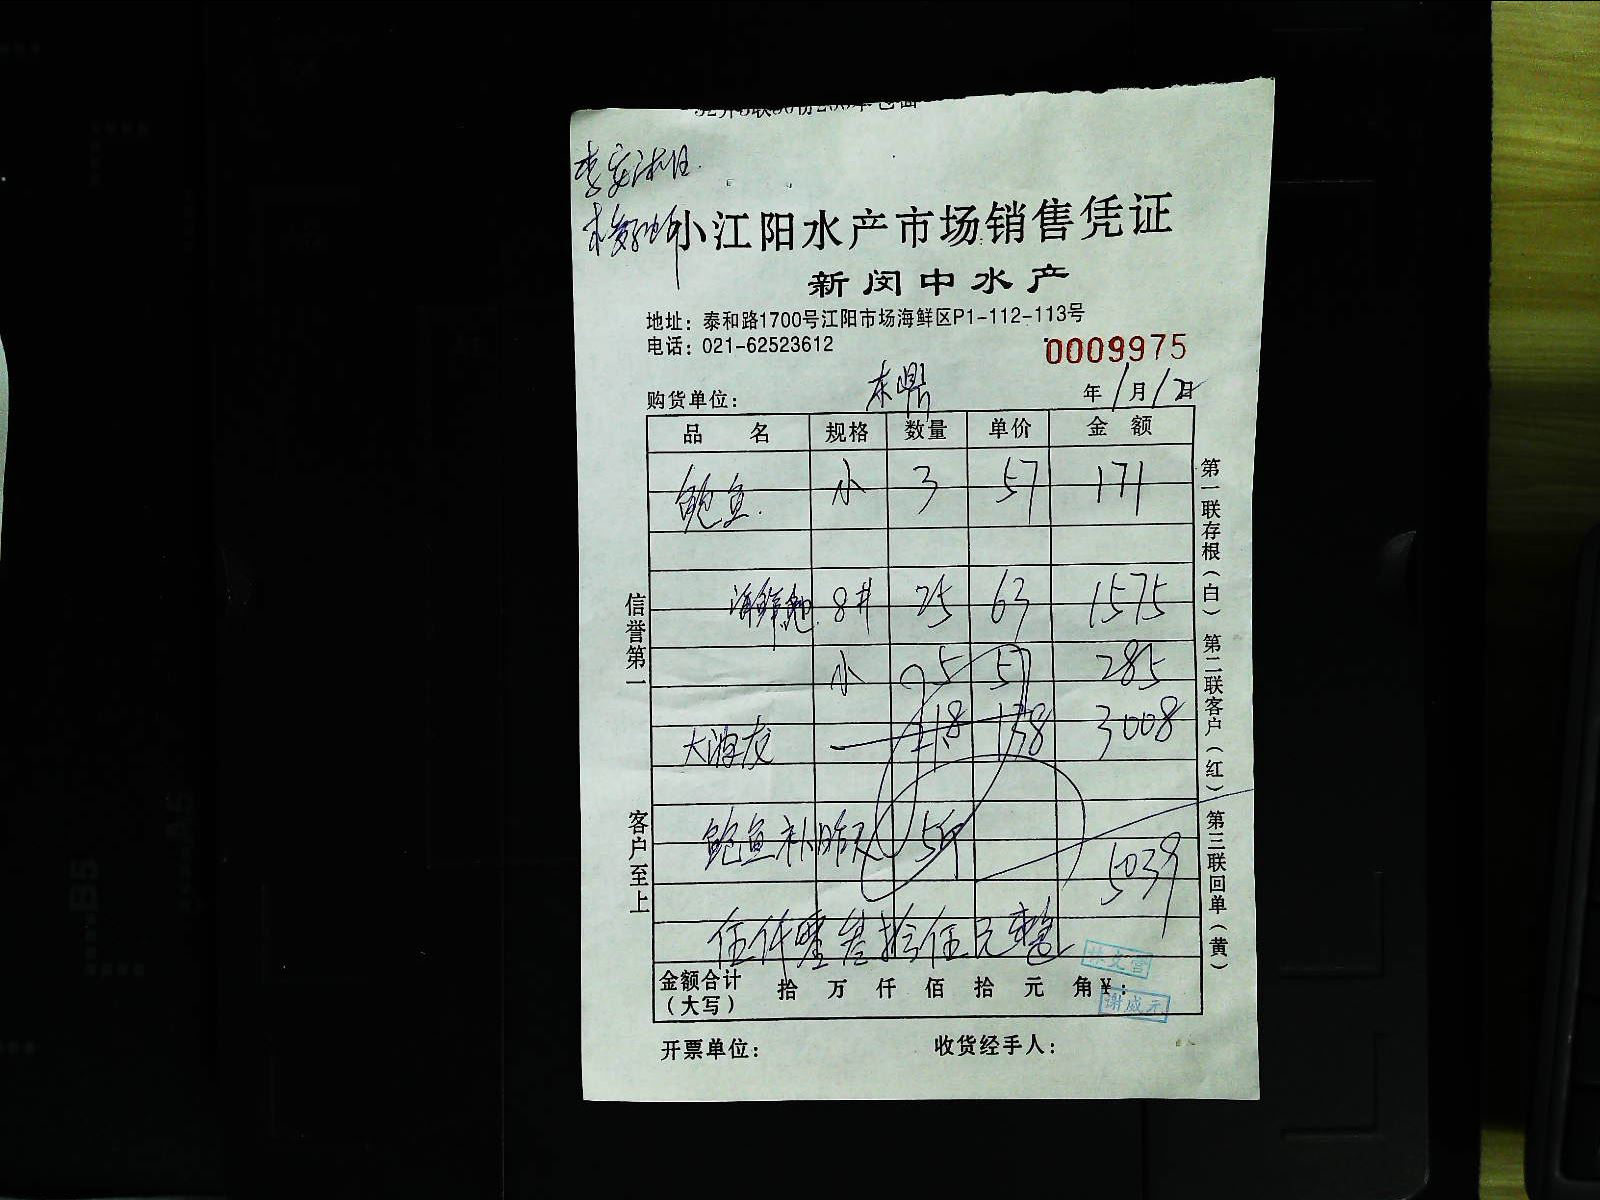 小江阳水产市场销售凭证
新闵中水产
地址：泰和路1700号江阳市场海鲜区P1-112-113号
电话：021-62523612
0009975
购货单位： 东鼎 年 1月12日
品 名 规格 数量 单价 金 额
鲍鱼 小 3 57 171
海鲜鲍 8# 25 63 1575
小 5 57 285
138 3008
鲍鱼补昨天 5斤
5039
伍仟零叁拾伍元整
金额合计（大写） 拾 万 仟 佰 拾 元 角 ¥：
林文雷
谢成元
开票单位： 收货经手人：
信誉第一
客户至上
第一联存根（白） 第二联客户（红） 第三联回单（黄）